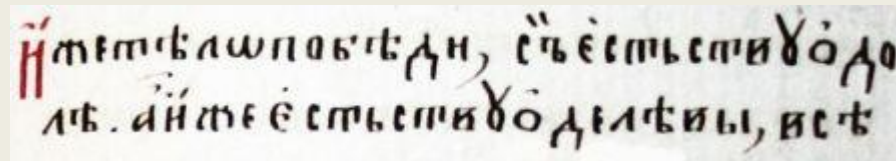 И҆жетѣлѡпобѣди, съе҆стьствꙋо҆до
лѣ. аи҆жее҆стьствꙋо҆делѣвы, всѣ